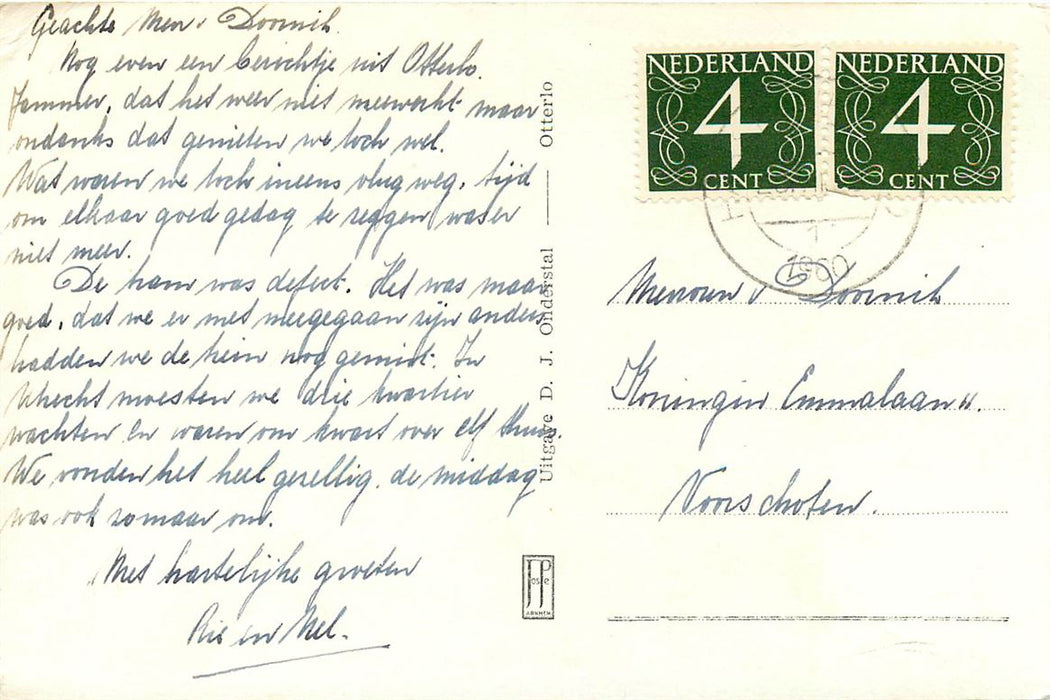 Geachte Mevr. v Doornik.
Nog even een berichtje uit Otterlo.
Jammer, dat het weer niet meewerkt maar
ondanks dat genieten we toch wel.
Wat waren we toch ineens vlug weg. tijd
om elkaar goed gedag te zeggen was er
niet meer.
De tram was defect. Het was maar
goed, dat we er met meegegaan zijn anders
hadden we de trein nog gemist. In
Utrecht moesten we drie kwartier
wachten en waren om kwart over elf thuis.
We vonden het heel gezellig. de middag
was ook zomaar om.
Met hartelijke groeten
Rie en Nel.
Uitgave D. J. Onderstal — Otterlo
JP
osPe
ARNHEM
NEDERLAND
4
CENT
NEDERLAND
4
CENT
1960
Mevrouw v Doornik
Koningin Emmalaan
Voorschoten.